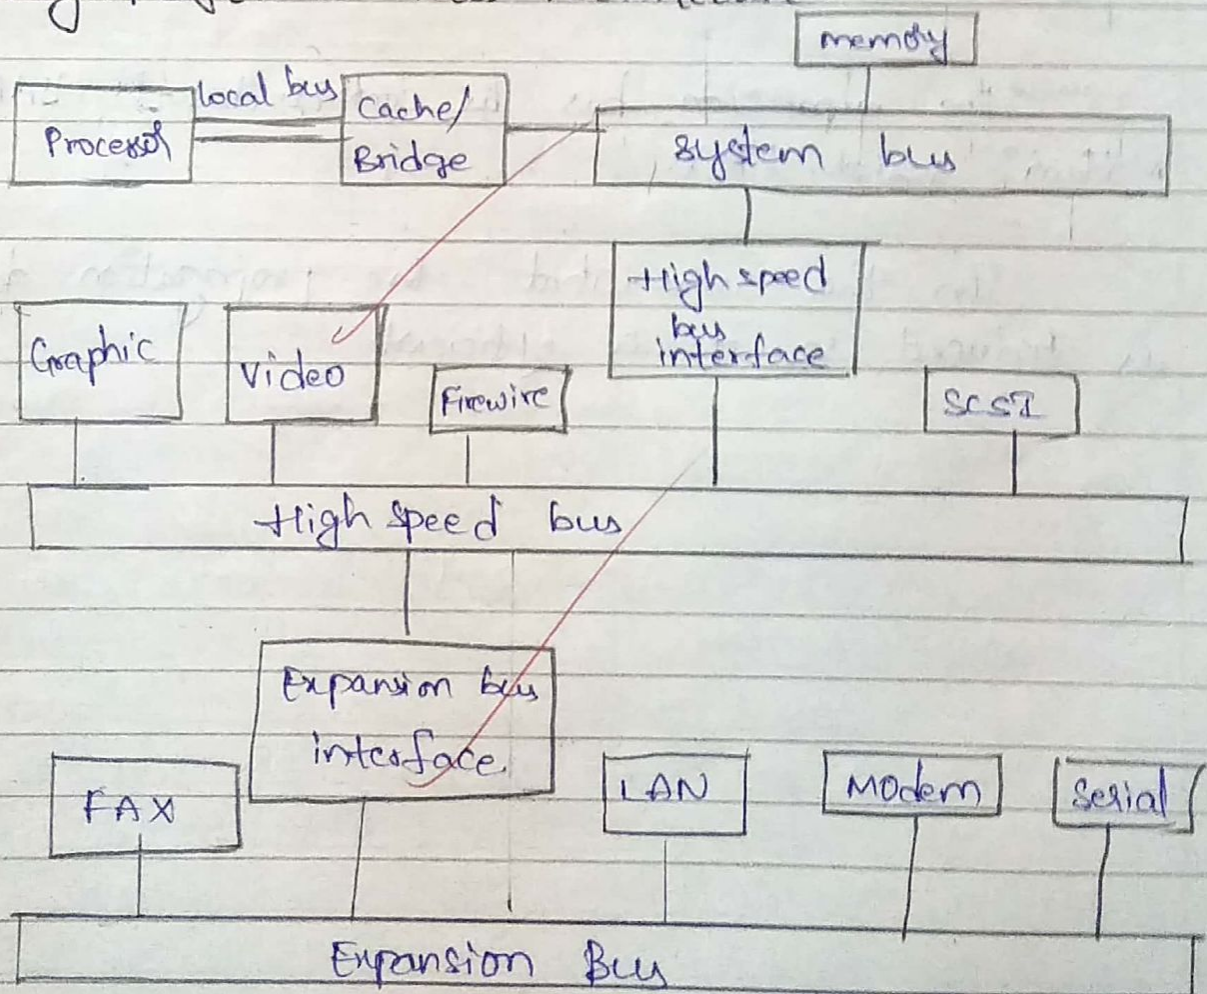 memory
local bus
Processor
Cache/
Bridge
system bus
High speed
bus
interface
Graphic
video
Firewire
SCSI
High speed bus
Expansion bus
interface.
FAX
LAN
Modem
Serial
Expansion Bus